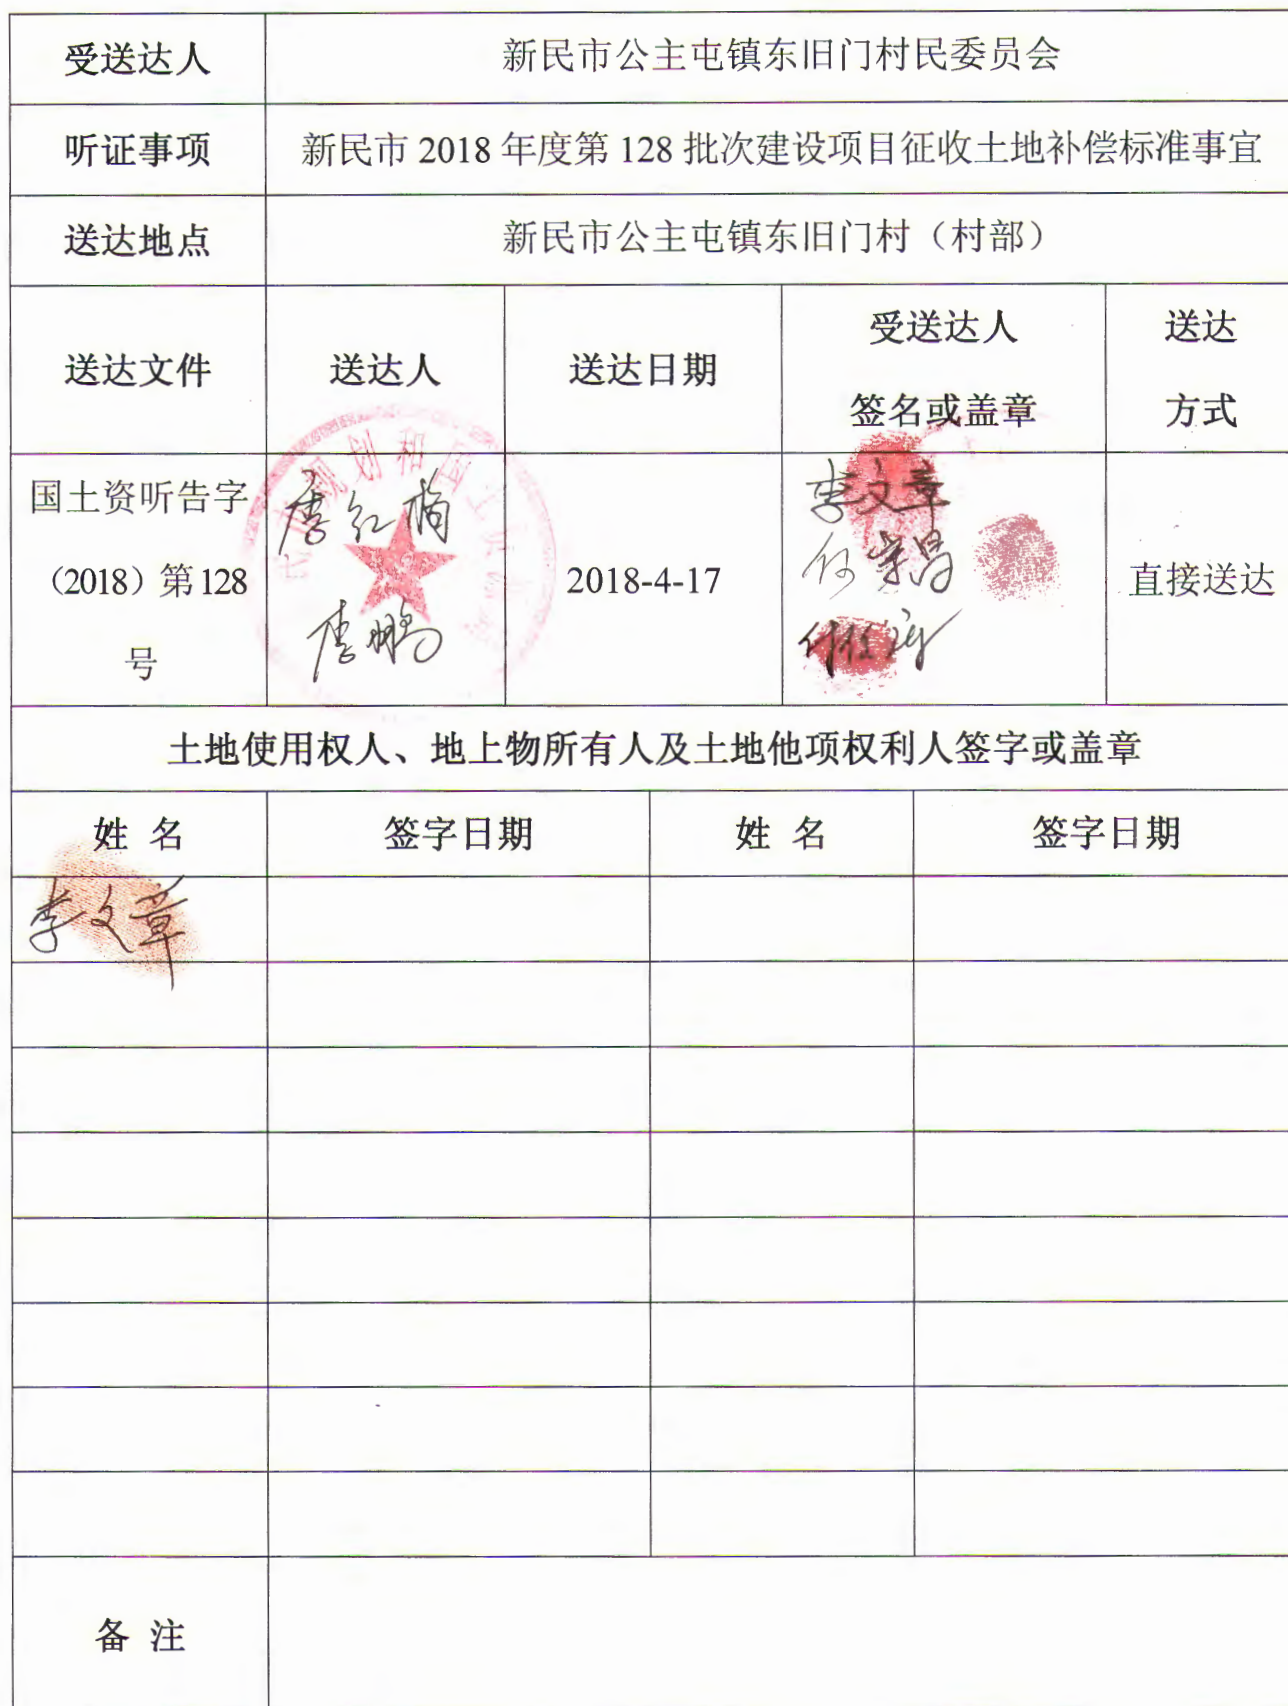 受送达人 新民市公主屯镇东旧门村民委员会
听证事项 新民市 2018 年度第 128 批次建设项目征收土地补偿标准事宜
送达地点 新民市公主屯镇东旧门村（村部）
送达文件 送达人 送达日期 受送达人 送达
签名或盖章 方式
国土资听告字
（2018）第 128
号
规划和国土
唐红梅
李鹏
2018-4-17
李文章
直接送达
土地使用权人、地上物所有人及土地他项权利人签字或盖章
姓 名 签字日期 姓 名 签字日期
李文章
备 注